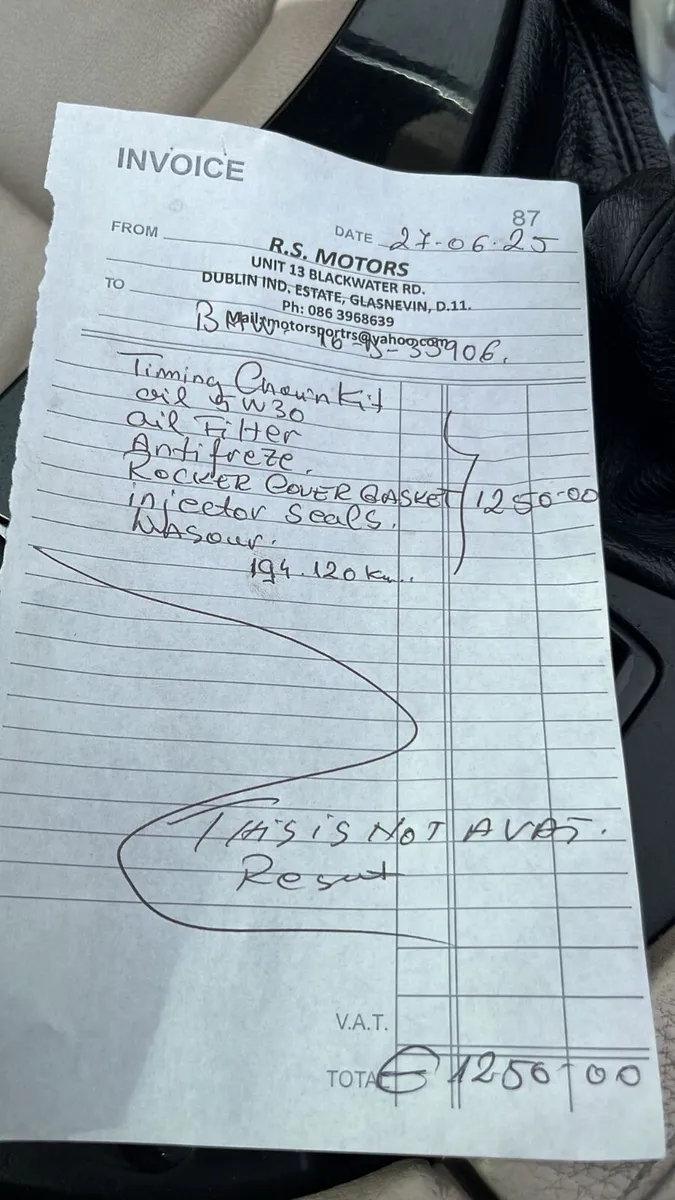 INVOICE
87
FROM
DATE 27-06-25
R.S. MOTORS
UNIT 13 BLACKWATER RD.
TO
DUBLIN IND. ESTATE, GLASNEVIN, D.11.
Ph: 086 3968639
motorsportrs@yahoo.com
Timing Chain Kit
oil 5W30
oil Filter
Antifreze.
ROCKER COVER GASKET 1250-00
injector Seals.
194.120 Km..
THiS iS NOT A VAT.
V.A.T.
TOTAL € 1250-00